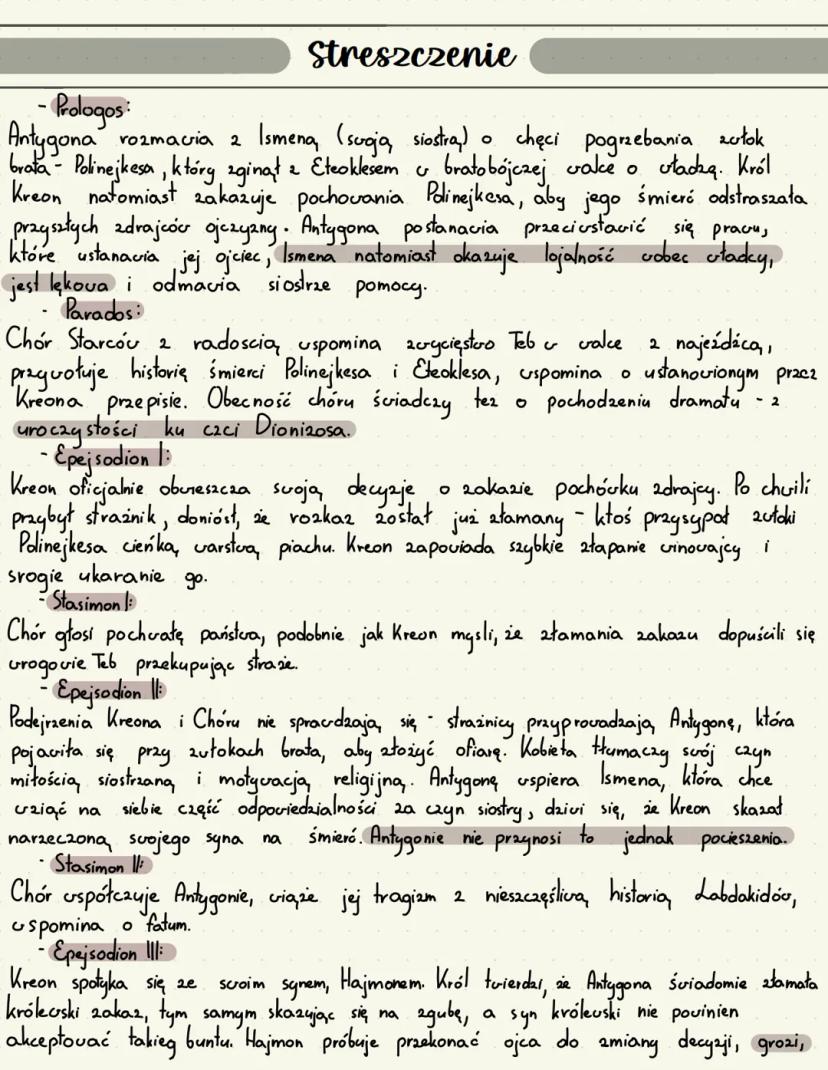 Streszczenie
- Prologos:
Antygona rozmawia z Ismeną (swoją siostrą) o chęci pogrzebania zwłok
brata - Polinejkesa, który zginął z Eteoklesem w bratobójczej walce o władzę. Król
Kreon natomiast zakazuje pochowania Polinejkesa, aby jego śmierć odstraszała
przyszłych zdrajców ojczyzny. Antygona postanawia przeciwstawić się prawu,
które ustanawia jej ojciec, Ismena natomiast okazuje lojalność wobec władcy,
jest lękowa i odmawia siostrze pomocy.
- Parados:
Chór Starców z radoscią wspomina zwycięstwo Teb w walce z najeźdźcą,
przywołuje historię śmierci Polinejkesa i Eteoklesa, wspomina o ustanowionym przez
Kreona przepisie. Obecność chóru świadczy też o pochodzeniu dramatu - z
uroczystości ku czci Dionizosa.
- Epejsodion I:
Kreon oficjalnie obwieszcza swoją decyzje o zakazie pochówku zdrajcy. Po chwili
przybył strażnik, doniósł, że rozkaz został już złamany - ktoś przysypał zwłoki
Polinejkesa cieńką warstwą piachu. Kreon zapowiada szybkie złapanie winowajcy i
srogie ukaranie go.
- Stasimon I:
Chór głosi pochwałę państwa, podobnie jak Kreon myśli, że złamania zakazu dopuścili się
wrogowie Teb przekupując straże.
- Epejsodion II:
Podejrzenia Kreona i Chóru nie sprawdzają się - strażnicy przyprowadzają Antygonę, która
pojawiła się przy zwłokach brata, aby złożyć ofiarę. Kobieta tłumaczy swój czyn
miłością siostrzaną i motywacją religijną. Antygonę wspiera Ismena, która chce
wziąć na siebie część odpowiedzialności za czyn siostry, dziwi się, że Kreon skazał
narzeczoną swojego syna na śmierć. Antygonie nie przynosi to jednak pocieszenia.
- Stasimon II:
Chór współczuje Antygonie, wiąże jej tragizm z nieszczęśliwą historią Labdakidów,
wspomina o fatum.
- Epejsodion III:
Kreon spotyka się ze swoim synem, Hajmonem. Król twierdzi, że Antygona świadomie złamała
królewski zakaz, tym samym skazując się na zgubę, a syn królewski nie powinien
akceptować takieg buntu. Hajmon próbuje przekonać ojca do zmiany decyzji, grozi,